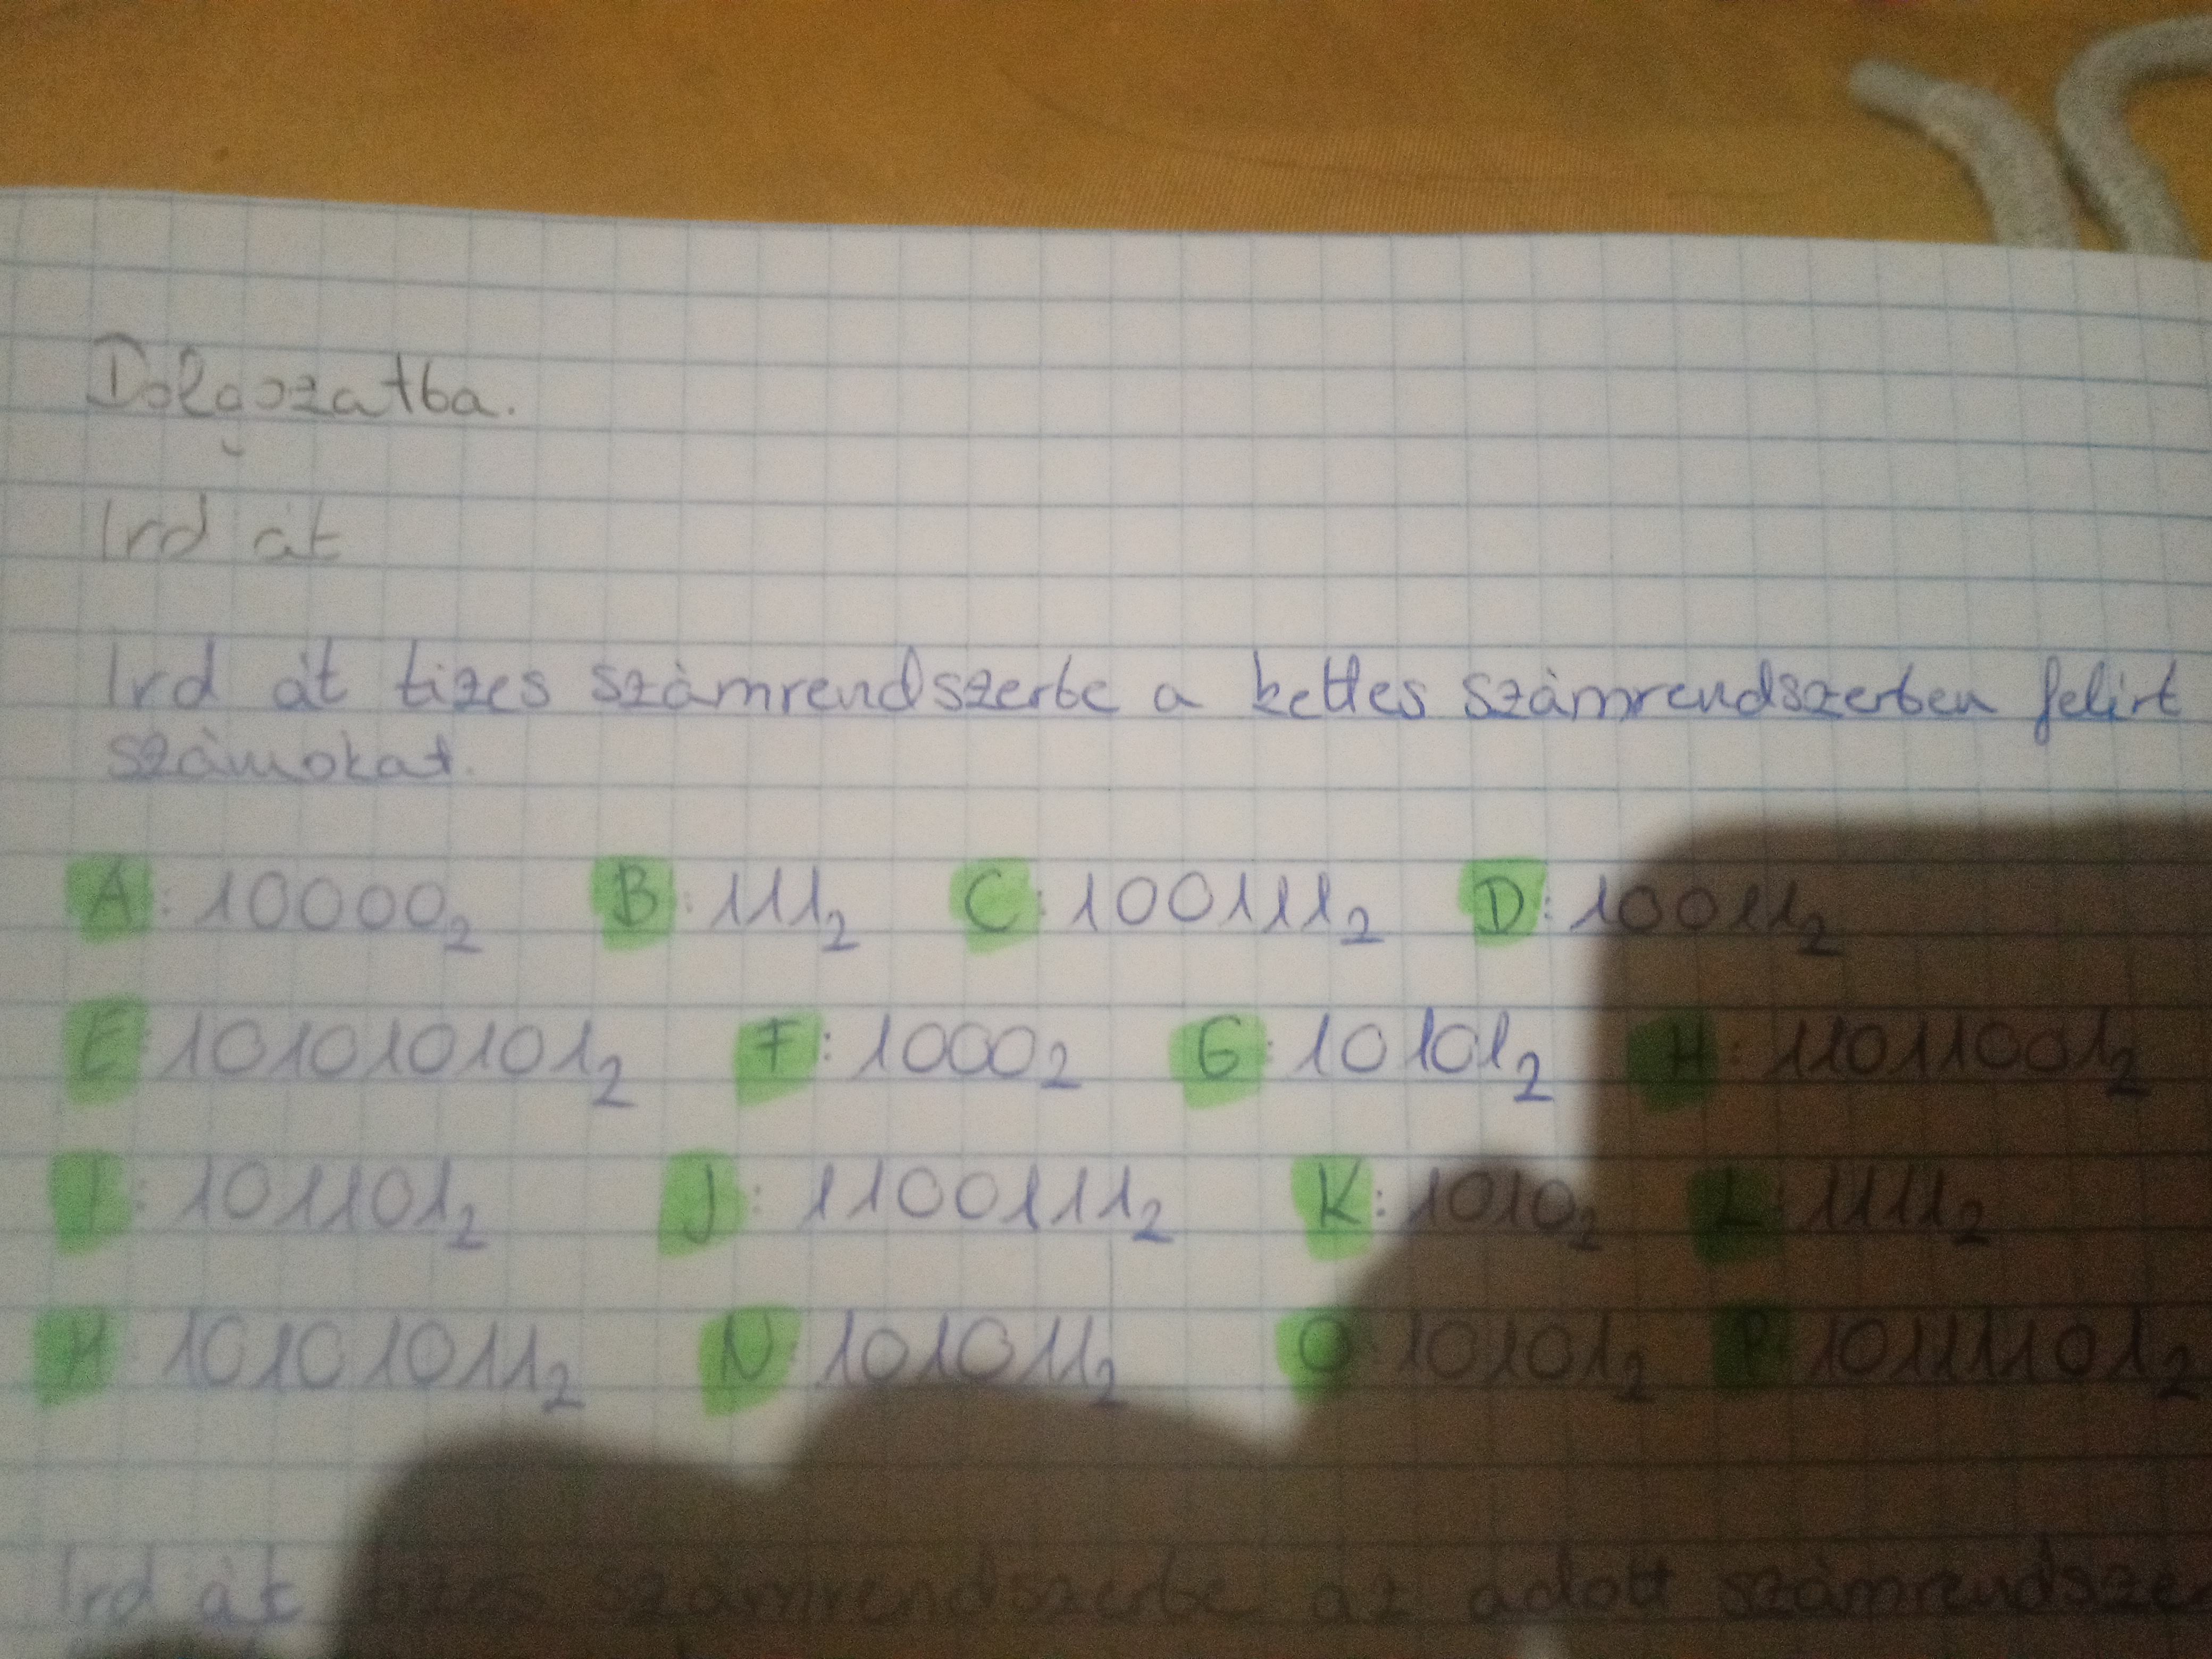 Dolgozatba.
Ird át
Ird át tizes számrendszerbe a kettes számrendszerben felirt
számokat.
A: 10000₂ B: 111₂ C: 100111₂ D: 10011₂
E: 101010101₂ F: 1000₂ G: 10101₂ H: 11011001₂
I: 101101₂ J: 1100111₂ K: 1010₂ L: 1111₂
M: 10101011₂ N: 101011₂ O: 10101₂ P: 10111101₂
Ird át tizes számrendszerbe az adott számrendsze